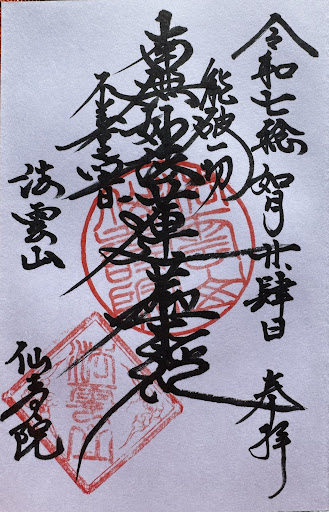 令和七稔如月廿肆日 奉拝
能破一切
南無妙法蓮華経
不善之闇
法雲山
仙寿院